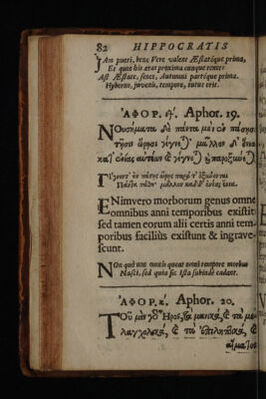 82 HIPPOCRATIS
IAm pueri, bene Vere valent Æstatisque prima,
Et quos his ætas proxima cunque tenet:
Ast Æstate, senes, Autumni partéque prima.
Hyberno, juvenis, tempore, tutus erit.
ἈΦΟΡ. ιθ'. Aphor. 19.
Νουσήματα δὲ πάντα μὲν ἐν πάσῃσι
τῇσιν ὥρῃσι γίγνε μᾶλλον δ' ἔνια
κατ' ἐνίας αὐτέων ἐ γίγνε ἐ παροξύνε
Πάντα μᾶλλον καθ' ἐνίας ἔνια.
ENimvero morborum genus omne
omnibus anni temporibus existit:
sed tamen eorum alii certis anni tem-
poribus facilius existunt & ingrave-
scunt.
NOn quod non omnis queat omni tempore morbus
Nasci, sed quia sic ista subinde cadant.
ἈΦΟΡ. κ'. Aphor. 20.
ΤΟῦ μὲν γὸ Ἦρος, τὰ μανικὰ, ἐ τὰ με-
λαγχολικὰ, ἐ τὰ ἐπιληπτικὰ, ἐ
αἵματος